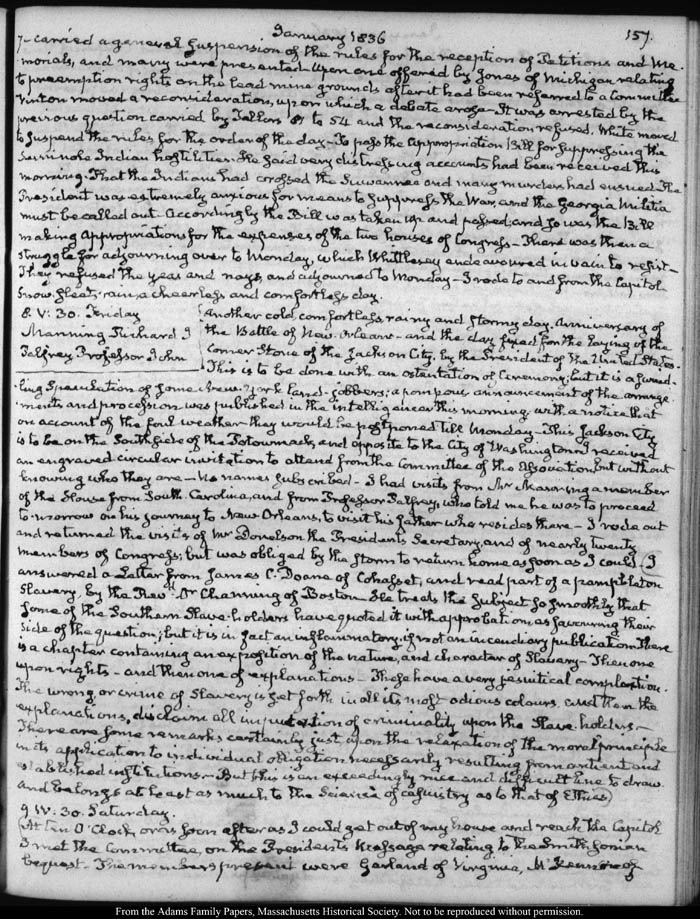 January 1836
157.
7— carried a general suspension of the rules for the reception of Petitions and Me-
morials, and many were presented. Upon one offered by Jones of Michigan relating
to preemption rights on the lead mine grounds after it had been referred to a Committee
Vinton moved a reconsideration, upon which a debate arose— It was arrested by the
previous question carried by Tellers 87 to 54 and the reconsideration refused. White moved
to suspend the rules for the order of the day— To pass the Appropriation Bill for suppressing the
Seminole Indian hostilities. He said very distressing accounts had been received this
morning. That the Indians had crossed the Suwannee and many murders had ensued. The
President was extremely anxious for means to suppress the War, and the Georgia Militia
must be called out— Accordingly the Bill was taken up and passed; and so was the Bill
making Appropriations for the expenses of the two houses of Congress— There was then a
struggle for adjourning over to Monday, which Whittlesey endeavoured in vain to resist—
They refused the yeas and nays, and adjourned to Monday— I rode to and from the Capitol
Snow, sleet, rain, a cheerless and comfortless day.
8. V: 30. Friday
Manning Richard I
Palfrey Professor John
Another cold, comfortless, rainy and stormy day. Anniversary of
the Battle of New-Orleans— and the day fixed for the laying of the
Corner Stone of the Jackson City, by the President of the United States.
This is to be done with an ostentation of Ceremony; but it is a swind-
ling Speculation of some New-York Land-jobbers; a pompous announcement of the arrange-
ments and procession was published in the Intelligencer this morning, with a notice that
on account of the foul weather they would be postponed till Monday— This Jackson City
is to be on the South side of the Potowmack, and opposite to the City of Washington. I received
an engraved circular invitation to attend from the Committee of the Association, but without
knowing who they are— no names subscribed— I had visits from Mr Manning a member
of the House from South Carolina, and from Professor Palfrey, who told me he was to proceed
to-morrow on his journey to New Orleans, to visit his father who resides there— I rode out
and returned the visits of Mr Donelson the President's Secretary, and of nearly twenty
members of Congress; but was obliged by the storm to return home as soon as I could— I
answered a Letter from James C. Doane of Cohasset, and read part of a pamphlet on
Slavery, by the Rev. Dr Channing of Boston— He treats the subject so smoothly that
some of the Southern Slave-holders have quoted it with approbation as favouring their
side of the question; but it is in fact an inflammatory, if not an incendiary publication. There
is a chapter containing an exposition of the nature, and character of Slavery— Then one
upon rights— and then one of explanations— These have a very jesuitical complection.
The wrong or crime of Slavery is set forth in all its most odious colours, and then the
explanations, disclaim all imputation of criminality upon the Slave-holders—
There are some remarks certainly just upon the relaxation of the moral principle
in its application to individual obligation necessarily resulting from ancient and
established institutions— But this is an exceedingly nice and difficult line to draw
and belongs at least as much to the Science of casuistry as to that of Ethics
9. IV: 30. Saturday.
At ten O'Clock, or as soon after as I could get out of my house and reach the Capitol
I met the Committee, on the President's Message relating to the Smithsonian
bequest. The members present were Garland of Virginia, McKennan of
From the Adams Family Papers, Massachusetts Historical Society. Not to be reproduced without permission.